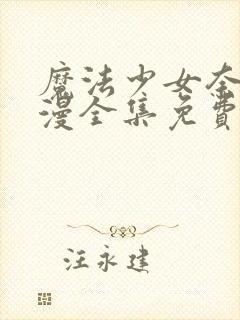 魔法少女奈
漫全集免費
汪永建